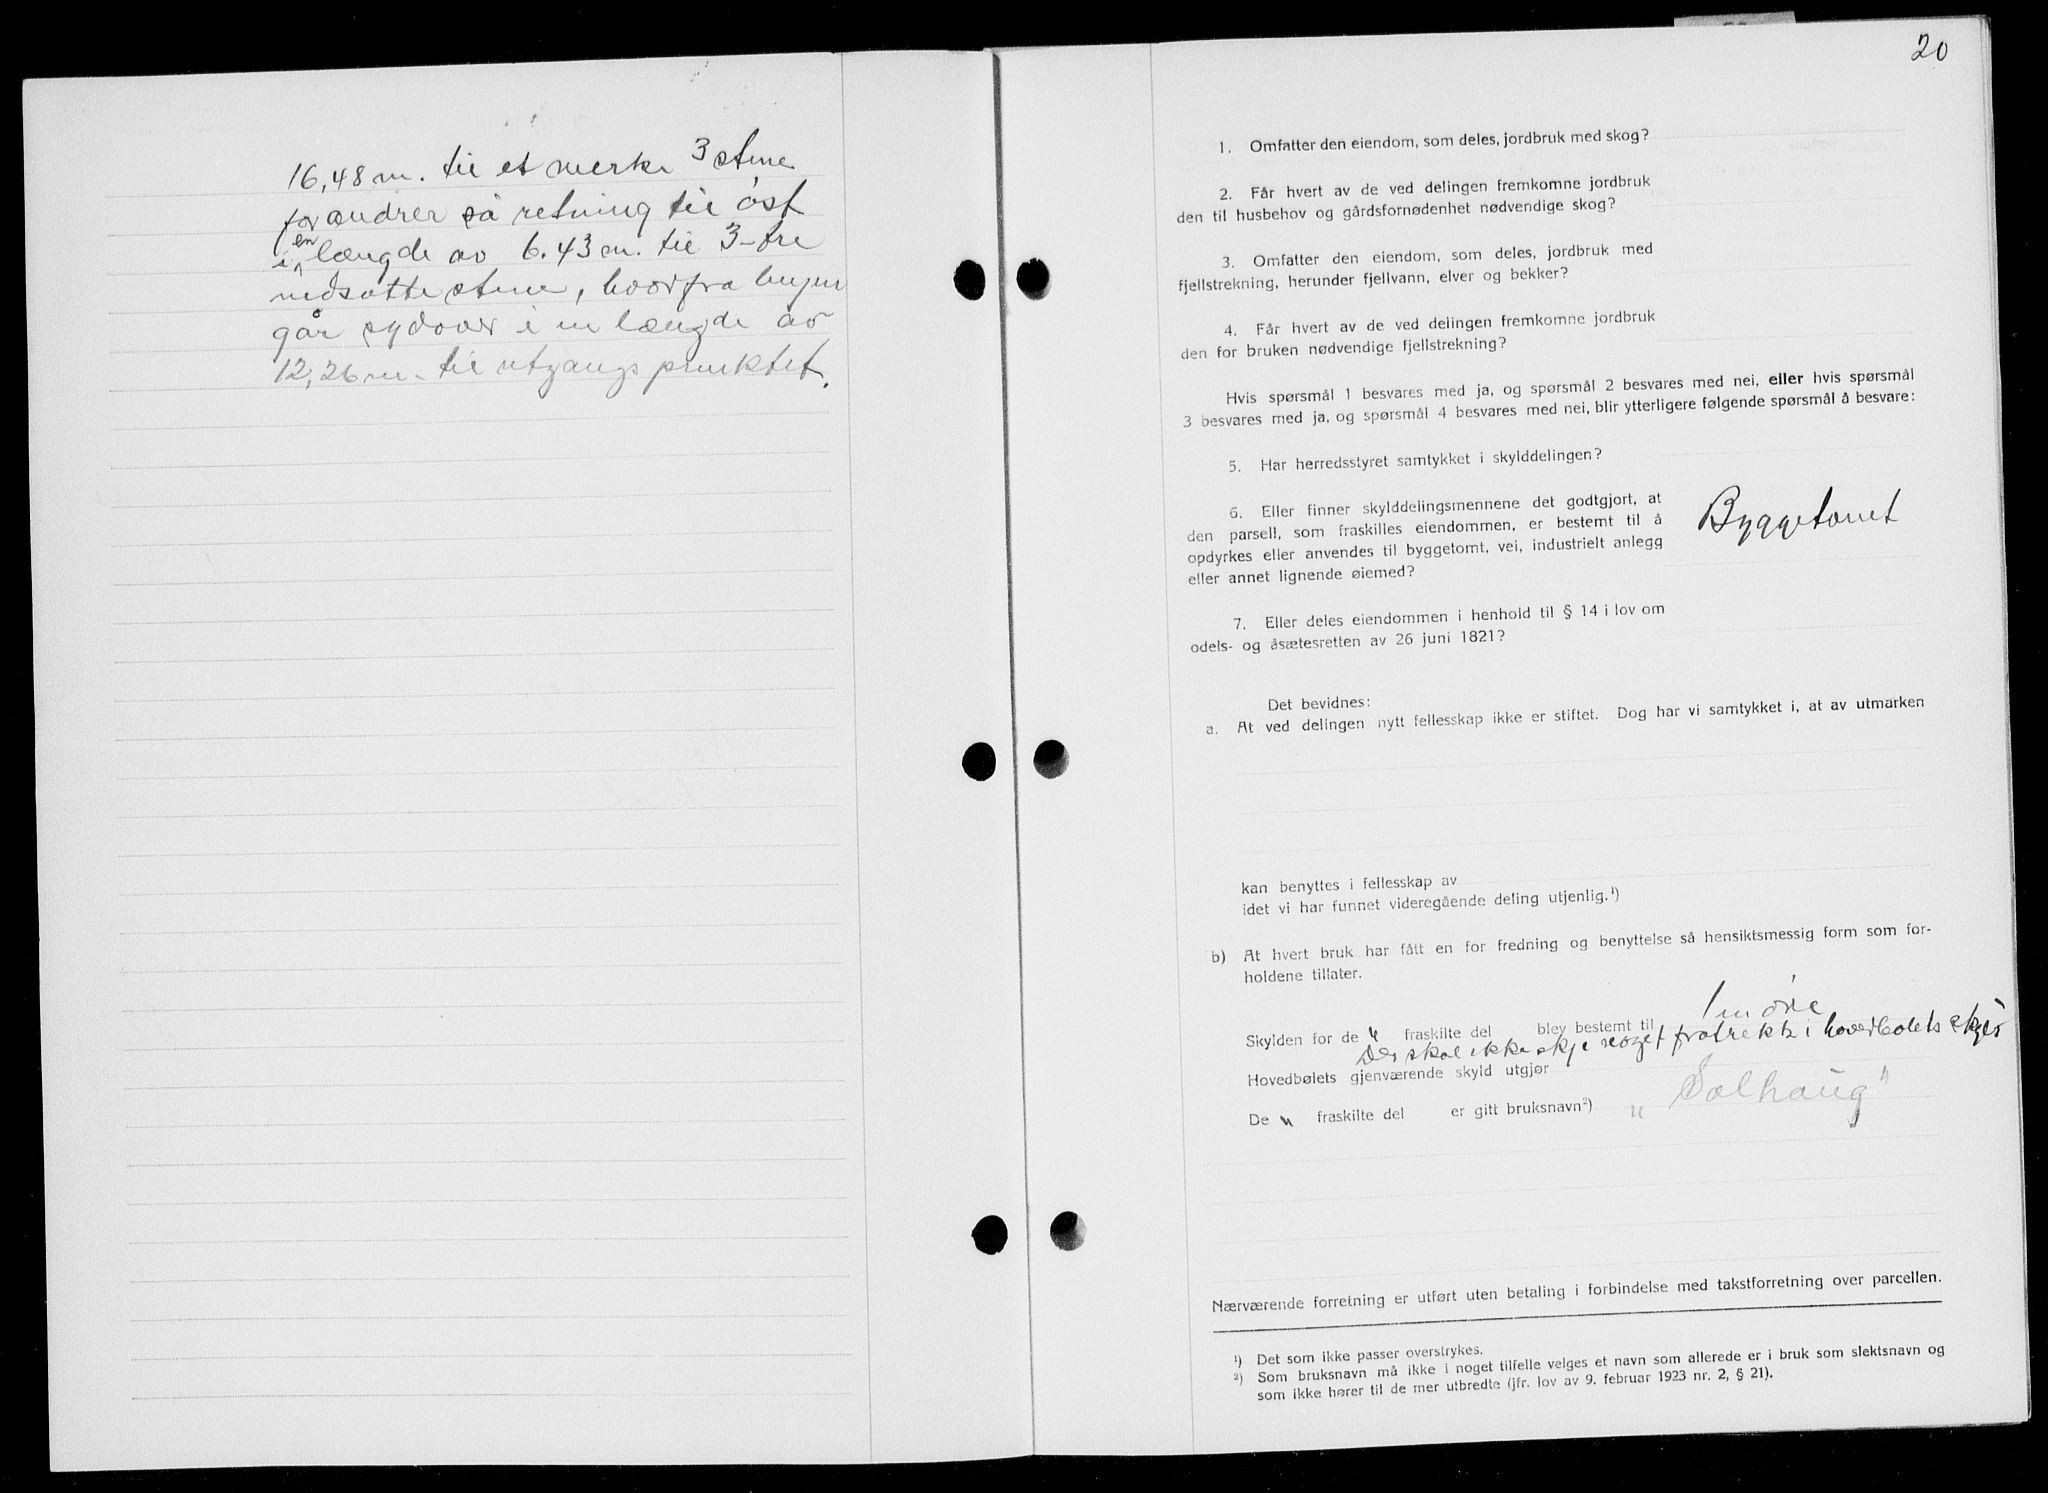 16,48 m. til et merke 3 stene
forandrer så retning til øst
i en længde av 6.43 m. til 3-tre
nedsatte stene, hvorfra linjen
går sydover i en længde av
12,26 m. til utgangspunktet.
20
1. Omfatter den eiendom, som deles, jordbruk med skog?
2. Får hvert av de ved delingen fremkomne jordbruk
den til husbehov og gårdsfornødenhet nødvendige skog?
3. Omfatter den eiendom, som deles, jordbruk med
fjellstrekning, herunder fjellvann, elver og bekker?
4. Får hvert av de ved delingen fremkomne jordbruk
den for bruken nødvendige fjellstrekning?
Hvis spørsmål 1 besvares med ja, og spørsmål 2 besvares med nei, eller hvis spørsmål
3 besvares med ja, og spørsmål 4 besvares med nei, blir ytterligere følgende spørsmål å besvare:
5. Har herredsstyret samtykket i skylddelingen?
6. Eller finner skylddelingsmennene det godtgjort, at
den parsell, som fraskilles eiendommen, er bestemt til å
opdyrkes eller anvendes til byggetomt, vei, industrielt anlegg
eller annet lignende øiemed?
Byggetomt
7. Eller deles eiendommen i henhold til § 14 i lov om
odels- og åsætesretten av 26 juni 1821?
Det bevidnes:
a. At ved delingen nytt fellesskap ikke er stiftet. Dog har vi samtykket i, at av utmarken
kan benyttes i fellesskap av
idet vi har funnet videregående deling utjenlig.¹)
b) At hvert bruk har fått en for fredning og benyttelse så hensiktsmessig form som for-
holdene tillater.
Skylden for de n fraskilte del blev bestemt til 1 en øre
Der skal ikke skje noget fratrekk i hovedbølets skyld
Hovedbølets gjenværende skyld utgjør
De n fraskilte del er gitt bruksnavn²) "Solhaug"
Nærværende forretning er utført uten betaling i forbindelse med takstforretning over parcellen.
¹) Det som ikke passer overstrykes.
²) Som bruksnavn må ikke i noget tilfelle velges et navn som allerede er i bruk som slektsnavn og
som ikke hører til de mer utbredte (jfr. lov av 9. februar 1923 nr. 2, § 21).